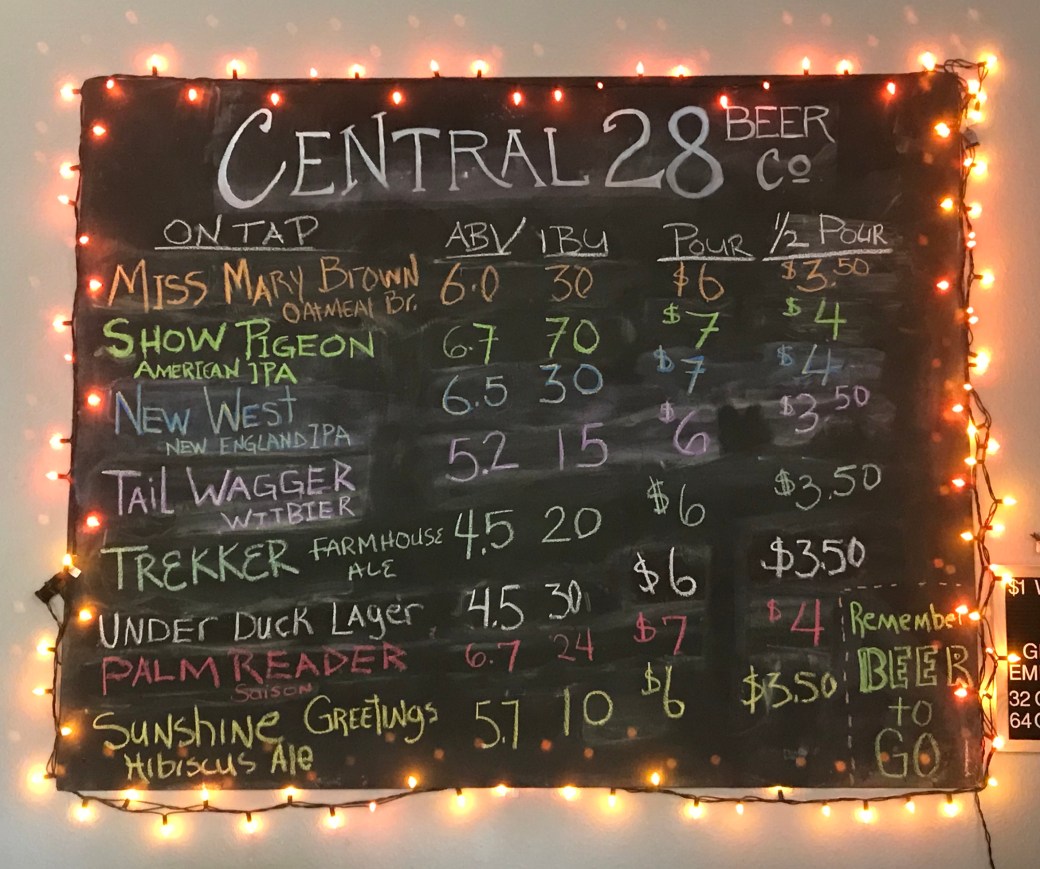 CENTRAL 28 BEER Co
ON TAP ABV IBU POUR 1/2 POUR
MISS MARY BROWN 6.0 30 $6 $3.50
OATMEAL Br.
SHOW PIGEON 6.7 70 $7 $4
AMERICAN IPA
NEW WEST 6.5 30 $7 $4
NEW ENGLAND IPA
TAIL WAGGER 5.2 15 $6 $3.50
WITBIER
TREKKER FARMHOUSE ALE 4.5 20 $6 $3.50
UNDER DUCK LAGER 4.5 30 $6 $3.50
PALM READER 6.7 24 $7 $4
Saison
SUNSHINE GREETINGS 5.7 10 $6 $3.50
Hibiscus Ale
Remember
BEER
to
GO
$1
32
64